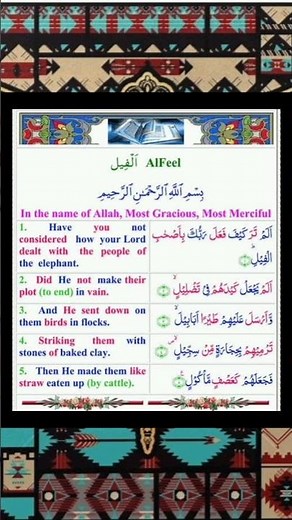 ٱلْفِيل AlFeel
بِسْمِ ٱللَّهِ ٱلرَّحْمَـٰنِ ٱلرَّحِيمِ
In the name of Allah, Most Gracious, Most Merciful
1. Have you not
considered how your Lord
dealt with the people of
the elephant.
أَلَمْ تَرَ كَيْفَ فَعَلَ رَبُّكَ بِأَصْحَٰبِ
ٱلْفِيلِ ۝١
2. Did He not make their
plot (to end) in vain.
أَلَمْ يَجْعَلْ كَيْدَهُمْ فِى تَضْلِيلٍ ۝٢
3. And He sent down on
them birds in flocks.
وَأَرْسَلَ عَلَيْهِمْ طَيْرًا أَبَابِيلَ ۝٣
4. Striking them with
stones of baked clay.
تَرْمِيهِمْ بِحِجَارَةٍ مِّنْ سِجِّيلٍ ۝٤
5. Then He made them like
straw eaten up (by cattle).
فَجَعَلَهُمْ كَعَصْفٍ مَّأْكُولٍ ۝٥